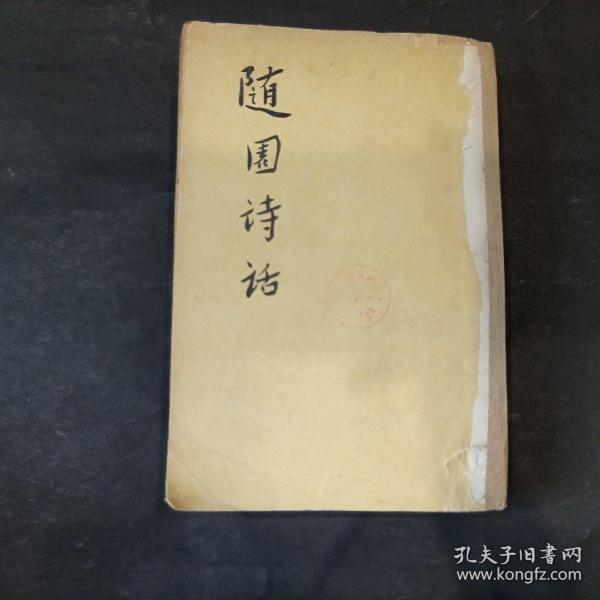 随园诗话
孔夫子旧書网
www.kongfz.com